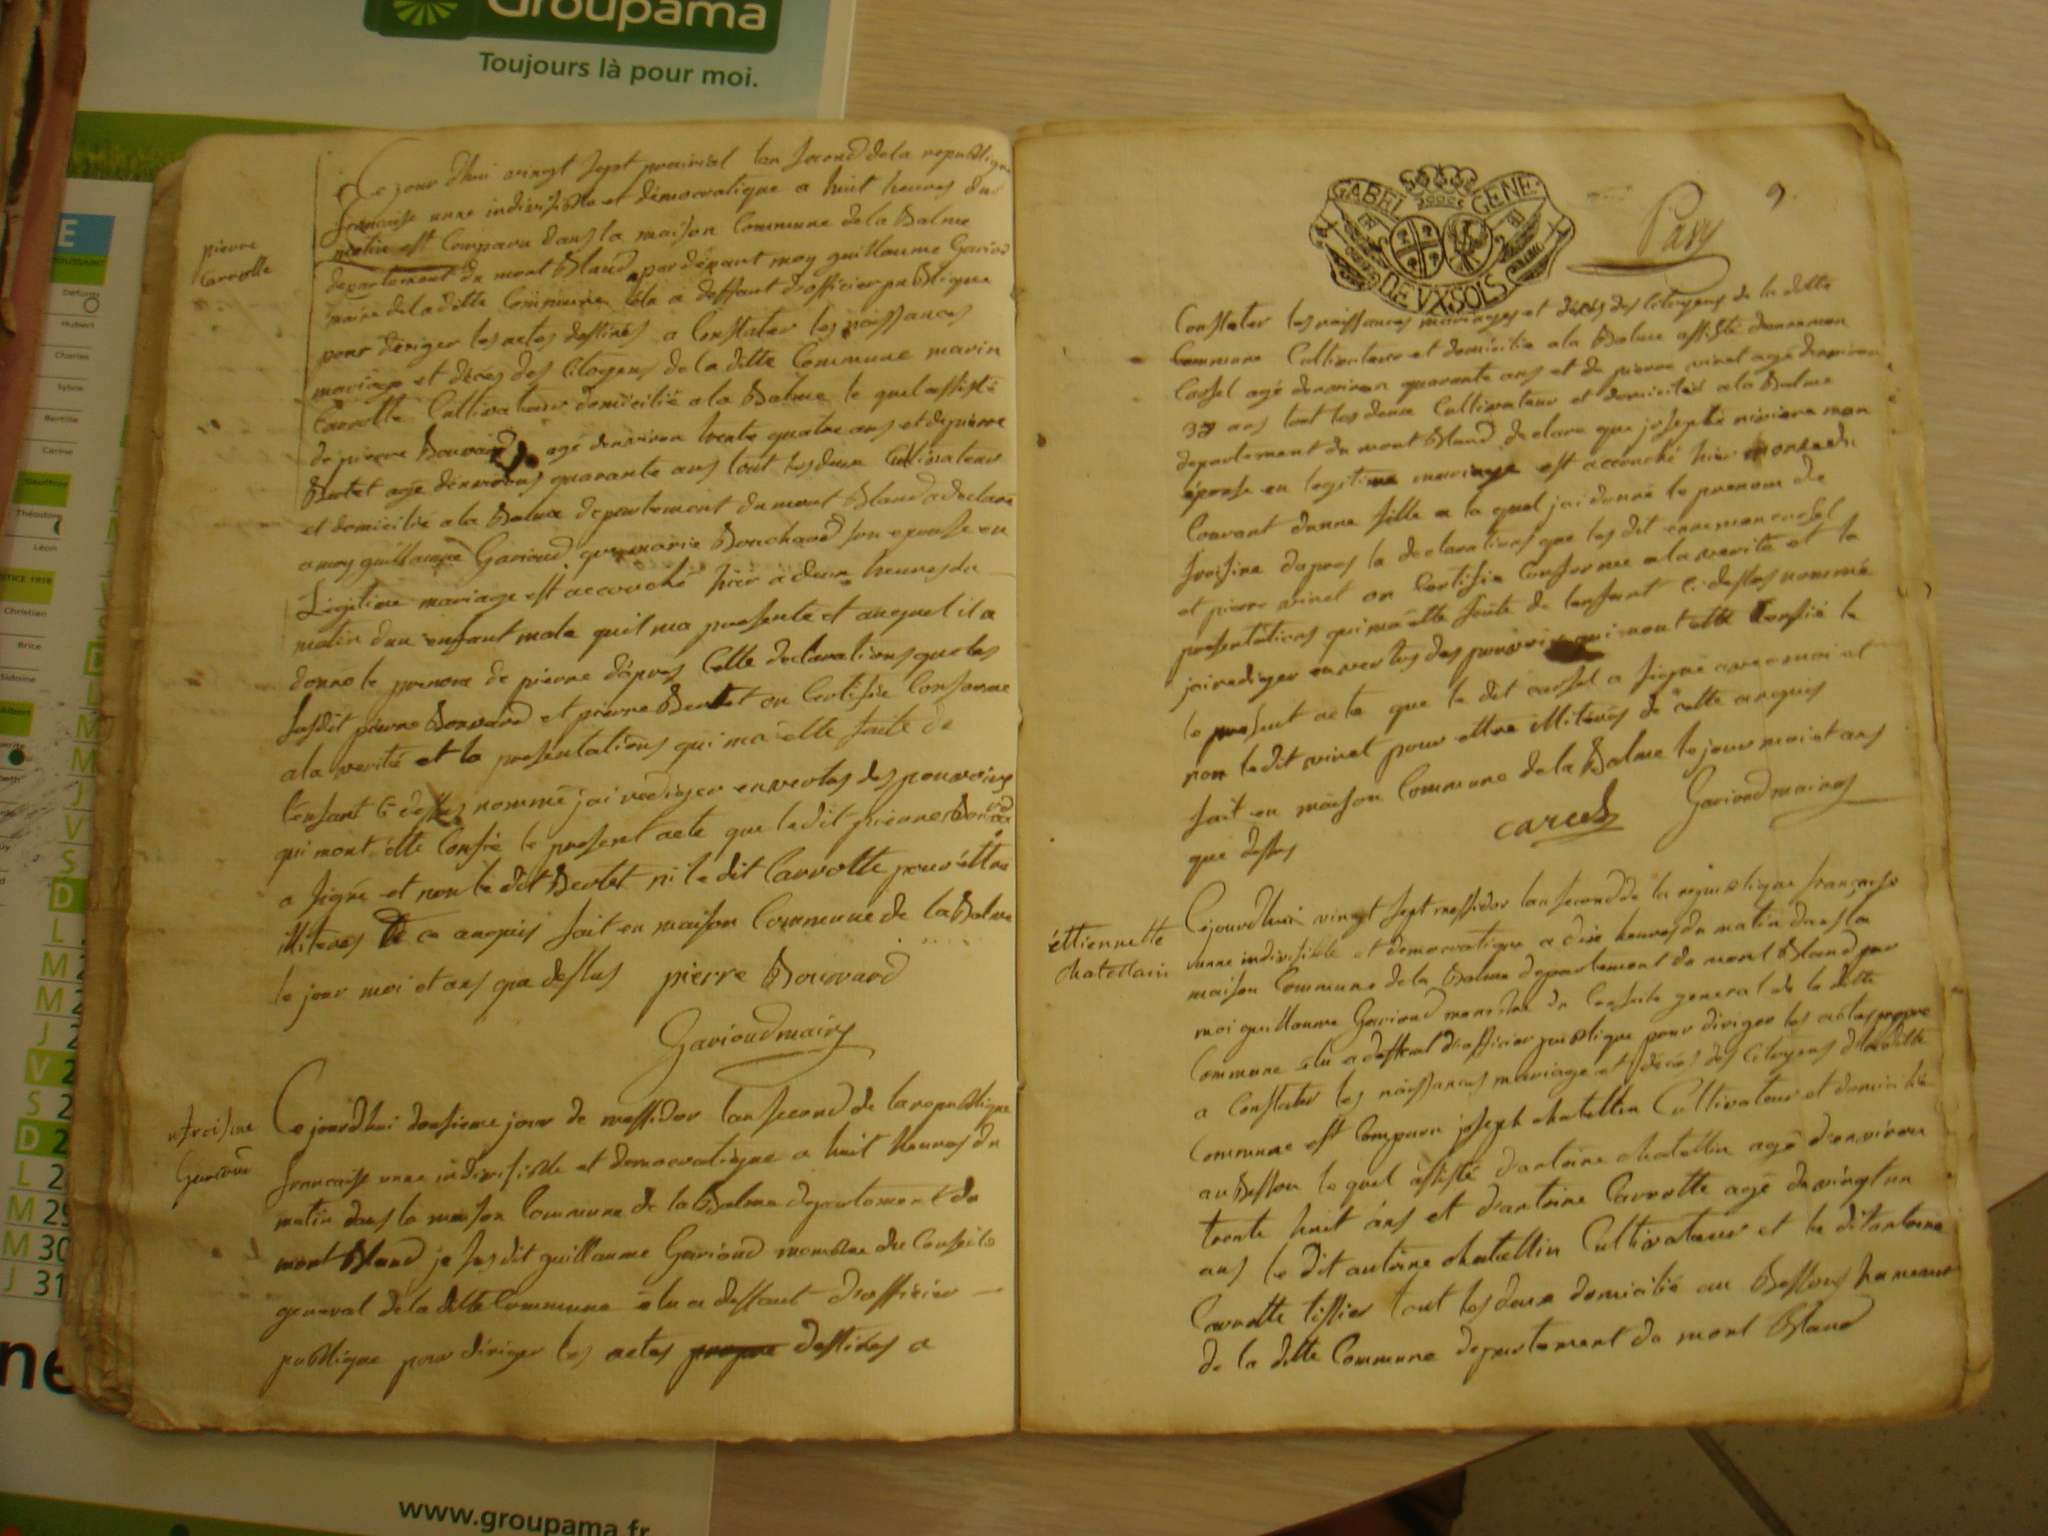 Groupama
Toujours là pour moi.
pierre
Carrotte
Ce jour dhui vingt sept prairial lan second de la republique
francaise unne indivisible et démocratique a huit heures du
matin est Comparu dans la maison Commune de la Balme
departement du mont Bland par dévant moy guillaume Gariod
maire de la ditte Commune élu a deffaut dofficier publique
pour dériger les actes destinés a Constater les naissances
mariage et décés des Citoyens de la ditte Commune marin
Carrotte Cultivateur domicilié a la Balme le quel assisté
de pierre Bouvard agé denviron trente quatre ans et de pierre
Bertet agé denvirons quarante ans tout les deux Cultivateur
et domicilié a la Balme departement du mont Bland a declare
a moy guillaume Garioud que marie Bouchard son epouse en
Légitime mariage est accouché hier a deux heures du
matin dun enfant male quil ma presenté et auquel il a
donné le prenom de pierre d'apres Cette declarations que les
susdit pierre Bouvard et pierre Bertet on Certifié Conforme
a la verité et la presentations qui ma etté faite de
l'enfant Ci dessus nommé jai rediger en vertus des pouvoirs
qui mont étté Confié le present acte que le dit pierre Bouvard
a signé et non le dit Bertet ni le dit Carrotte pour éttre
illiteres de ce anquis fait en maison Commune de la Balme
le jour moi et ans que dessus pierre Bouvard
Garioud maire
Ce jourdhui dousieme jour de messidor lan second de la republique
francaise unne indivisible et democratique a huit heures du
matin dans la maison Commune de la Balme departement du
mont Bland je susdit guillaume Garioud membre du Conseils
general de la ditte Commune élu a deffaut d'officier
publique pour diriger les actes propre destinés a
GABEL GENE
DEVX SOLS
Pavy
9.
Constater les naissances mariages et décés des Citoyens de la ditte
Commune Cultivateur et domicilié a la Balme assisté
agé denviron quarante ans et de pierre vinet agé denviron
37 ans tout les deux Cultivateur et domicilié a la Balme
departement du mont Bland declare que josephe riviere mon
épouse en legitime mariage est accouché hier onze du
Courant dunne fille a la quel jai donné le prenom de
froisine dapres la declarations que les dit
et pierre vinet on Certifié Conforme a la verité et la
presentations qui ma étté faite de lenfant Ci dessus nommé
jai rediger en vertus des pouvoirs qui mont etté Confié le
le present acte que le dit carsel a signé avec moi et
non le dit vinet pour ettre illiterés de cette anquis
fait en maison Commune de la Balme le jour moi et ans
que dessus Garioud maire
éttiennette
chatellain
Cejourdhui vingt sept messidor lan second de la republique française
unne indivisible et democratique a dix heures du matin dans la
maison Commune de la Balme departement du mont Bland par
moi guillaume Gariod membre du Conseils general de la ditte
Commune élu a deffaut d'officier publique pour diriger les actes propre
a Constater les naissances mariage et décés des Citoyens de la ditte
Commune est Comparu joseph chatellin Cultivateur et domicilié
au Besson le quel assisté d'antoine chatellin agé d'environ
trente huit ans et d'antoine Carrotte agé de vingt un
ans le dit antoine chatellin Cultivateur et le dit antoine
Carrotte tissier tout les deux domicilié au Bessons hameau
de la ditte Commune departement du mont Bland
www.groupama.fr